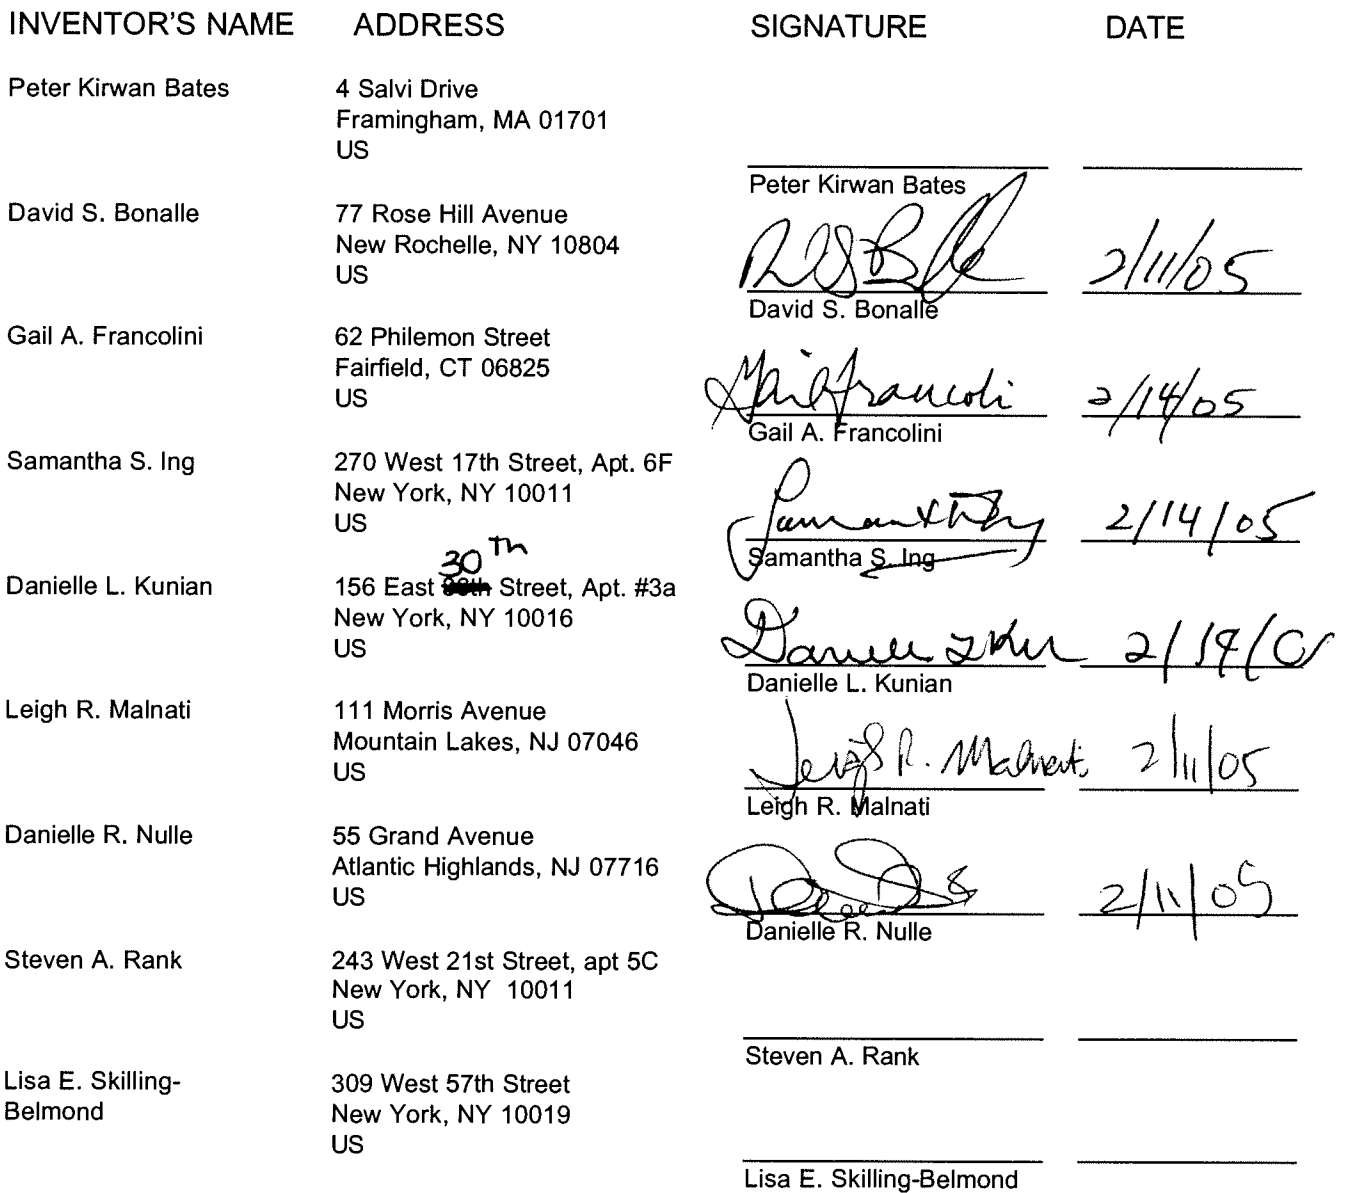 INVENTOR'S NAME ADDRESS SIGNATURE DATE
Peter Kirwan Bates 4 Salvi Drive
Framingham, MA 01701
US
Peter Kirwan Bates
David S. Bonalle 77 Rose Hill Avenue
New Rochelle, NY 10804
US 2/11/05
David S. Bonalle
Gail A. Francolini 62 Philemon Street
Fairfield, CT 06825
US Gail A Francoli 2/14/05
Gail A. Francolini
Samantha S. Ing 270 West 17th Street, Apt. 6F
New York, NY 10011
US Samantha Ing 2/14/05
Samantha S. Ing
30th
Danielle L. Kunian 156 East Street, Apt. #3a
New York, NY 10016
US Danielle L Kun 2/14/0
Danielle L. Kunian
Leigh R. Malnati 111 Morris Avenue
Mountain Lakes, NJ 07046
US Leigh R. Malnati 2/11/05
Leigh R. Malnati
Danielle R. Nulle 55 Grand Avenue
Atlantic Highlands, NJ 07716
US 2/11/05
Danielle R. Nulle
Steven A. Rank 243 West 21st Street, apt 5C
New York, NY 10011
US
Steven A. Rank
Lisa E. Skilling- 309 West 57th Street
Belmond New York, NY 10019
US
Lisa E. Skilling-Belmond